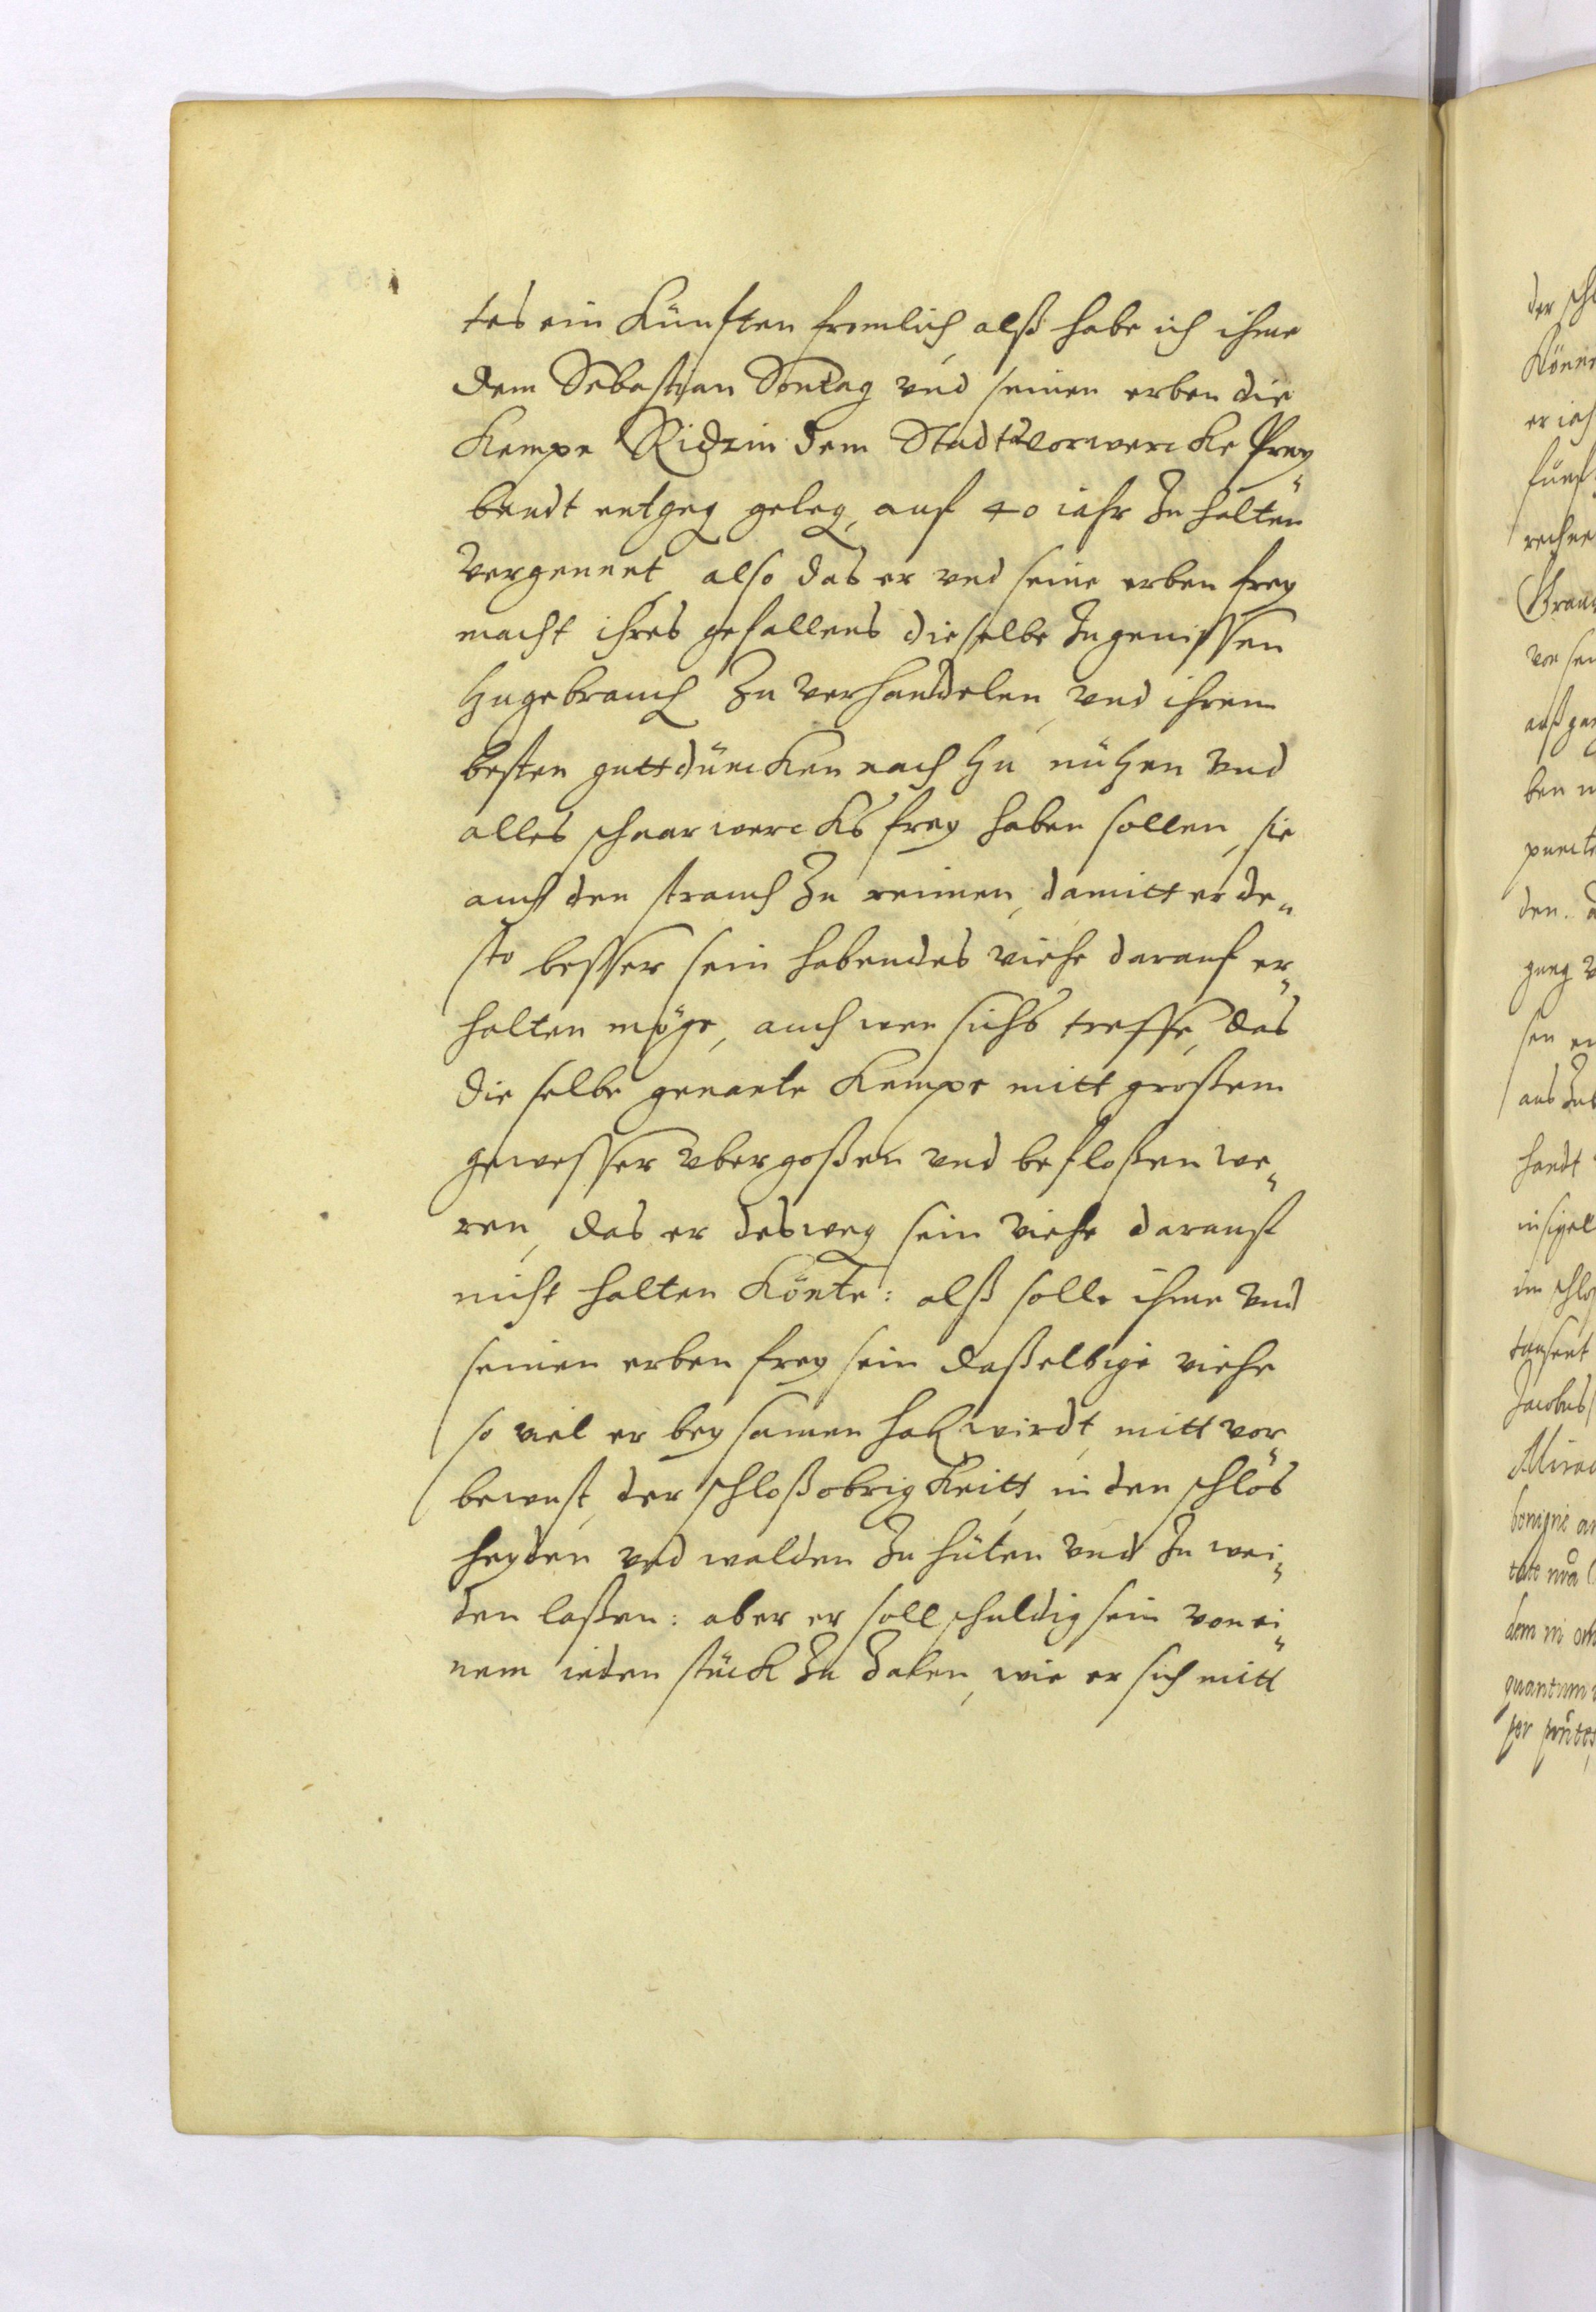 tes ein Künsten fromlich alß habe ich ihme
dem Sebastian Sontag vnd seinen erben die
Kempe Ridzin dem Stadtvorwercke Prey¬
bandt entgeg geleg, auf 40 iahr zu halten
vergennet also das er vnd seine erben frey
macht ihres gefallens dieselbe zu genissen
zugebrauch zu verhandelen, vnd ihrem
besten guttdüncken nach zu nützen vnd
alles schaarwercks frey haben sollen, sie
auch den strauch zu reimen, damitt er de¬
sto besser sein habendes viehe darauf er¬
halten möge, auch wen sichs treffe, das
die selbe genante Kempe mitt großem
gewesser vbergoßen vnd befloßen we¬
ren, das er desweg sein viehe darauff
nicht halten könte: alß solle ihme vnd
seinen erben frey sein daßelbige viehe
so viel er bey samen hab wirdt, mitt vor¬
bewust, der schloßobrigkeitt, in den schlos
heyden vnd walden zu hüten vnd zu wei¬
den laßen: aber er soll schuldig sein von ei¬
nem ieden stück zu zalen, wie er sich mitt
der schl
er iah
rechne
von sei
auß gan
ben
puncte
den.
gung
sen
handt
insigel
im schlo
tausent
Jacobus
bonigne
dem in
quantum
per